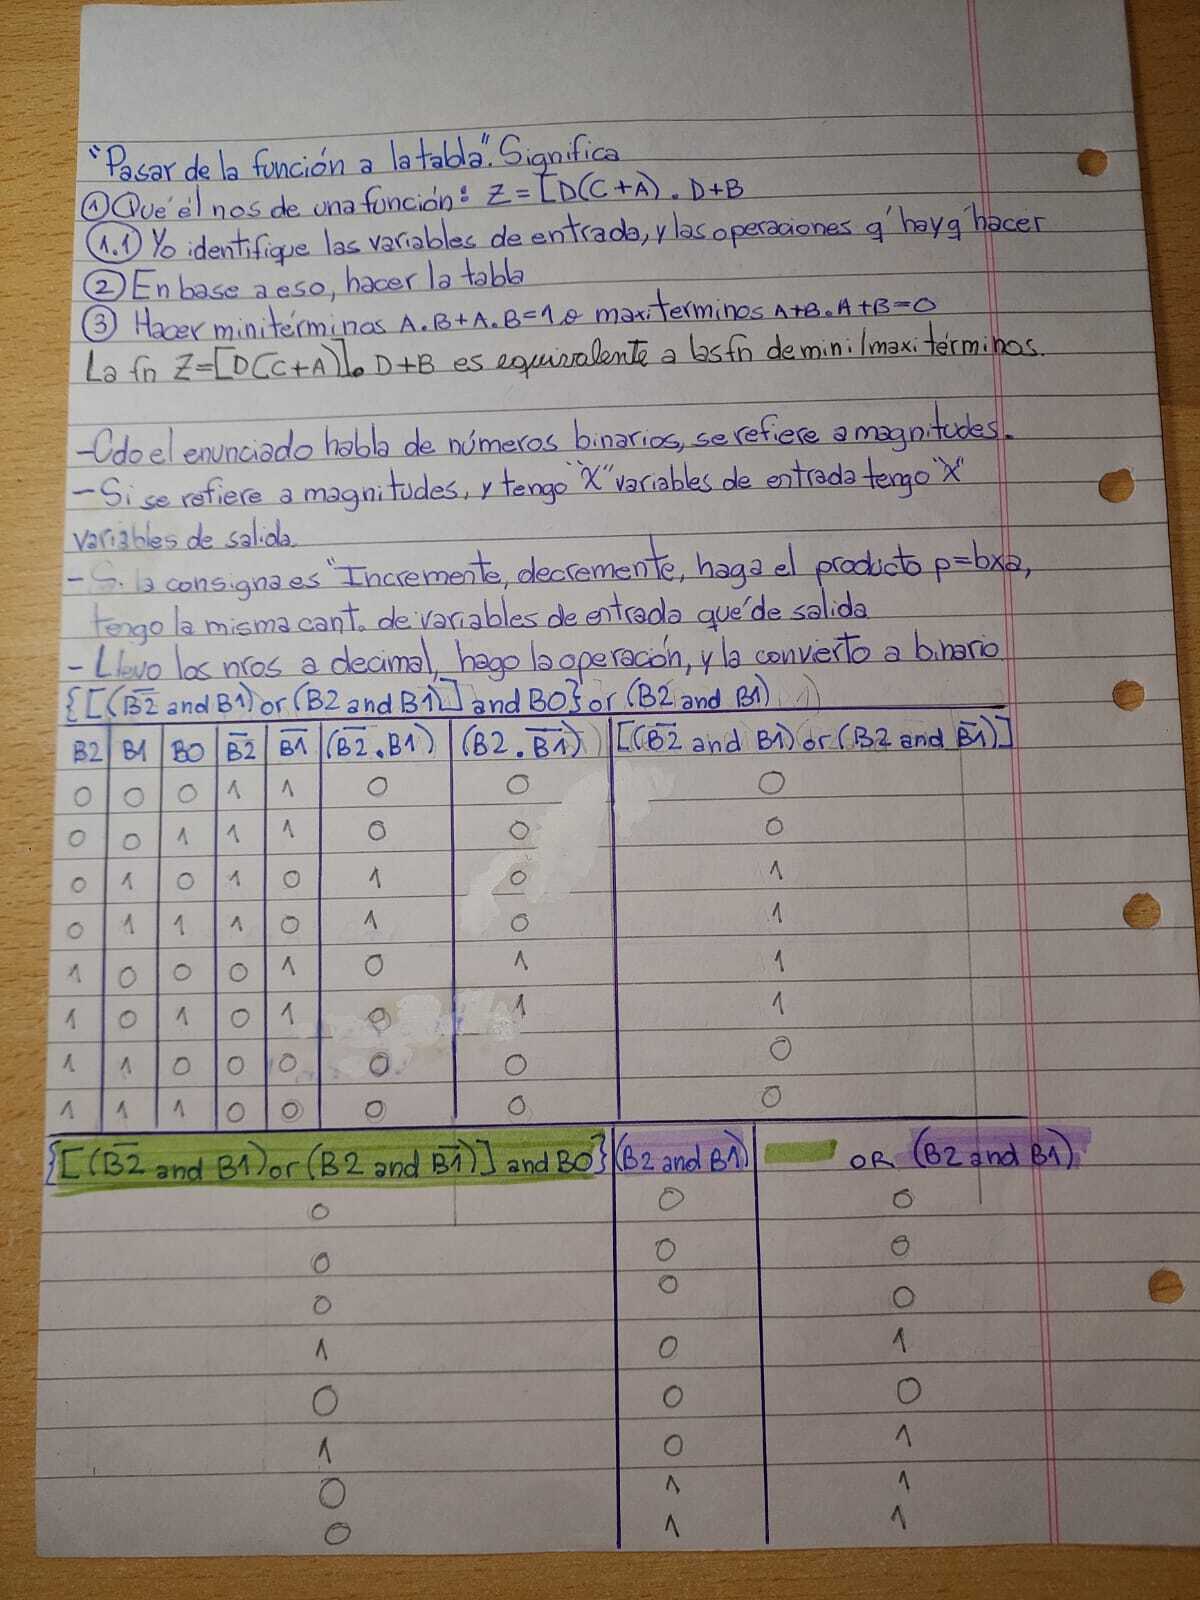 "Pasar de la función a la tabla". Significa
① Qué él nos de una función: Z=[D(C+A). D+B
1.1 Yo identifique las variables de entrada, y las operaciones q' hay q' hacer
② En base a eso, hacer la tabla
③ Hacer minitérminos A.B+A.B=1 o maxiterminos A+B.A+B=0
La fn Z=[D(C+A)]. D+B es equivalente a las fn de mini/maxi términos.
-Cdo el enunciado habla de números binarios, se refiere a magnitudes.
- Si se refiere a magnitudes, y tengo "X" variables de entrada tengo "X"
variables de salida.
- Si la consigna es "Incremente, decremente, haga el producto p=bxa,
tengo la misma cant. de variables de entrada que de salida
- Llevo los nros a decimal, hago la operación, y la convierto a binario
{[(B̅2̅ and B1) or (B2 and B1)] and B0} or (B2 and B1)
B2 B1 B0 B̅2̅ B̅1̅ (B̅2̅.B1) (B2.B̅1̅) [(B̅2̅ and B1) or (B2 and B̅1̅)]
0 0 0 1 1 0 0 0
0 0 1 1 1 0 0 0
0 1 0 1 0 1 0 1
0 1 1 1 0 1 0 1
1 0 0 0 1 0 1 1
1 0 1 0 1 0 1 1
1 1 0 0 0 0 0 0
1 1 1 0 0 0 0 0
{[(B̅2̅ and B1) or (B2 and B̅1̅)] and B0} (B2 and B1) OR (B2 and B1)
0 0 0
0 0 0
0 0 0
1 0 1
0 0 0
1 0 1
0 1 1
0 1 1